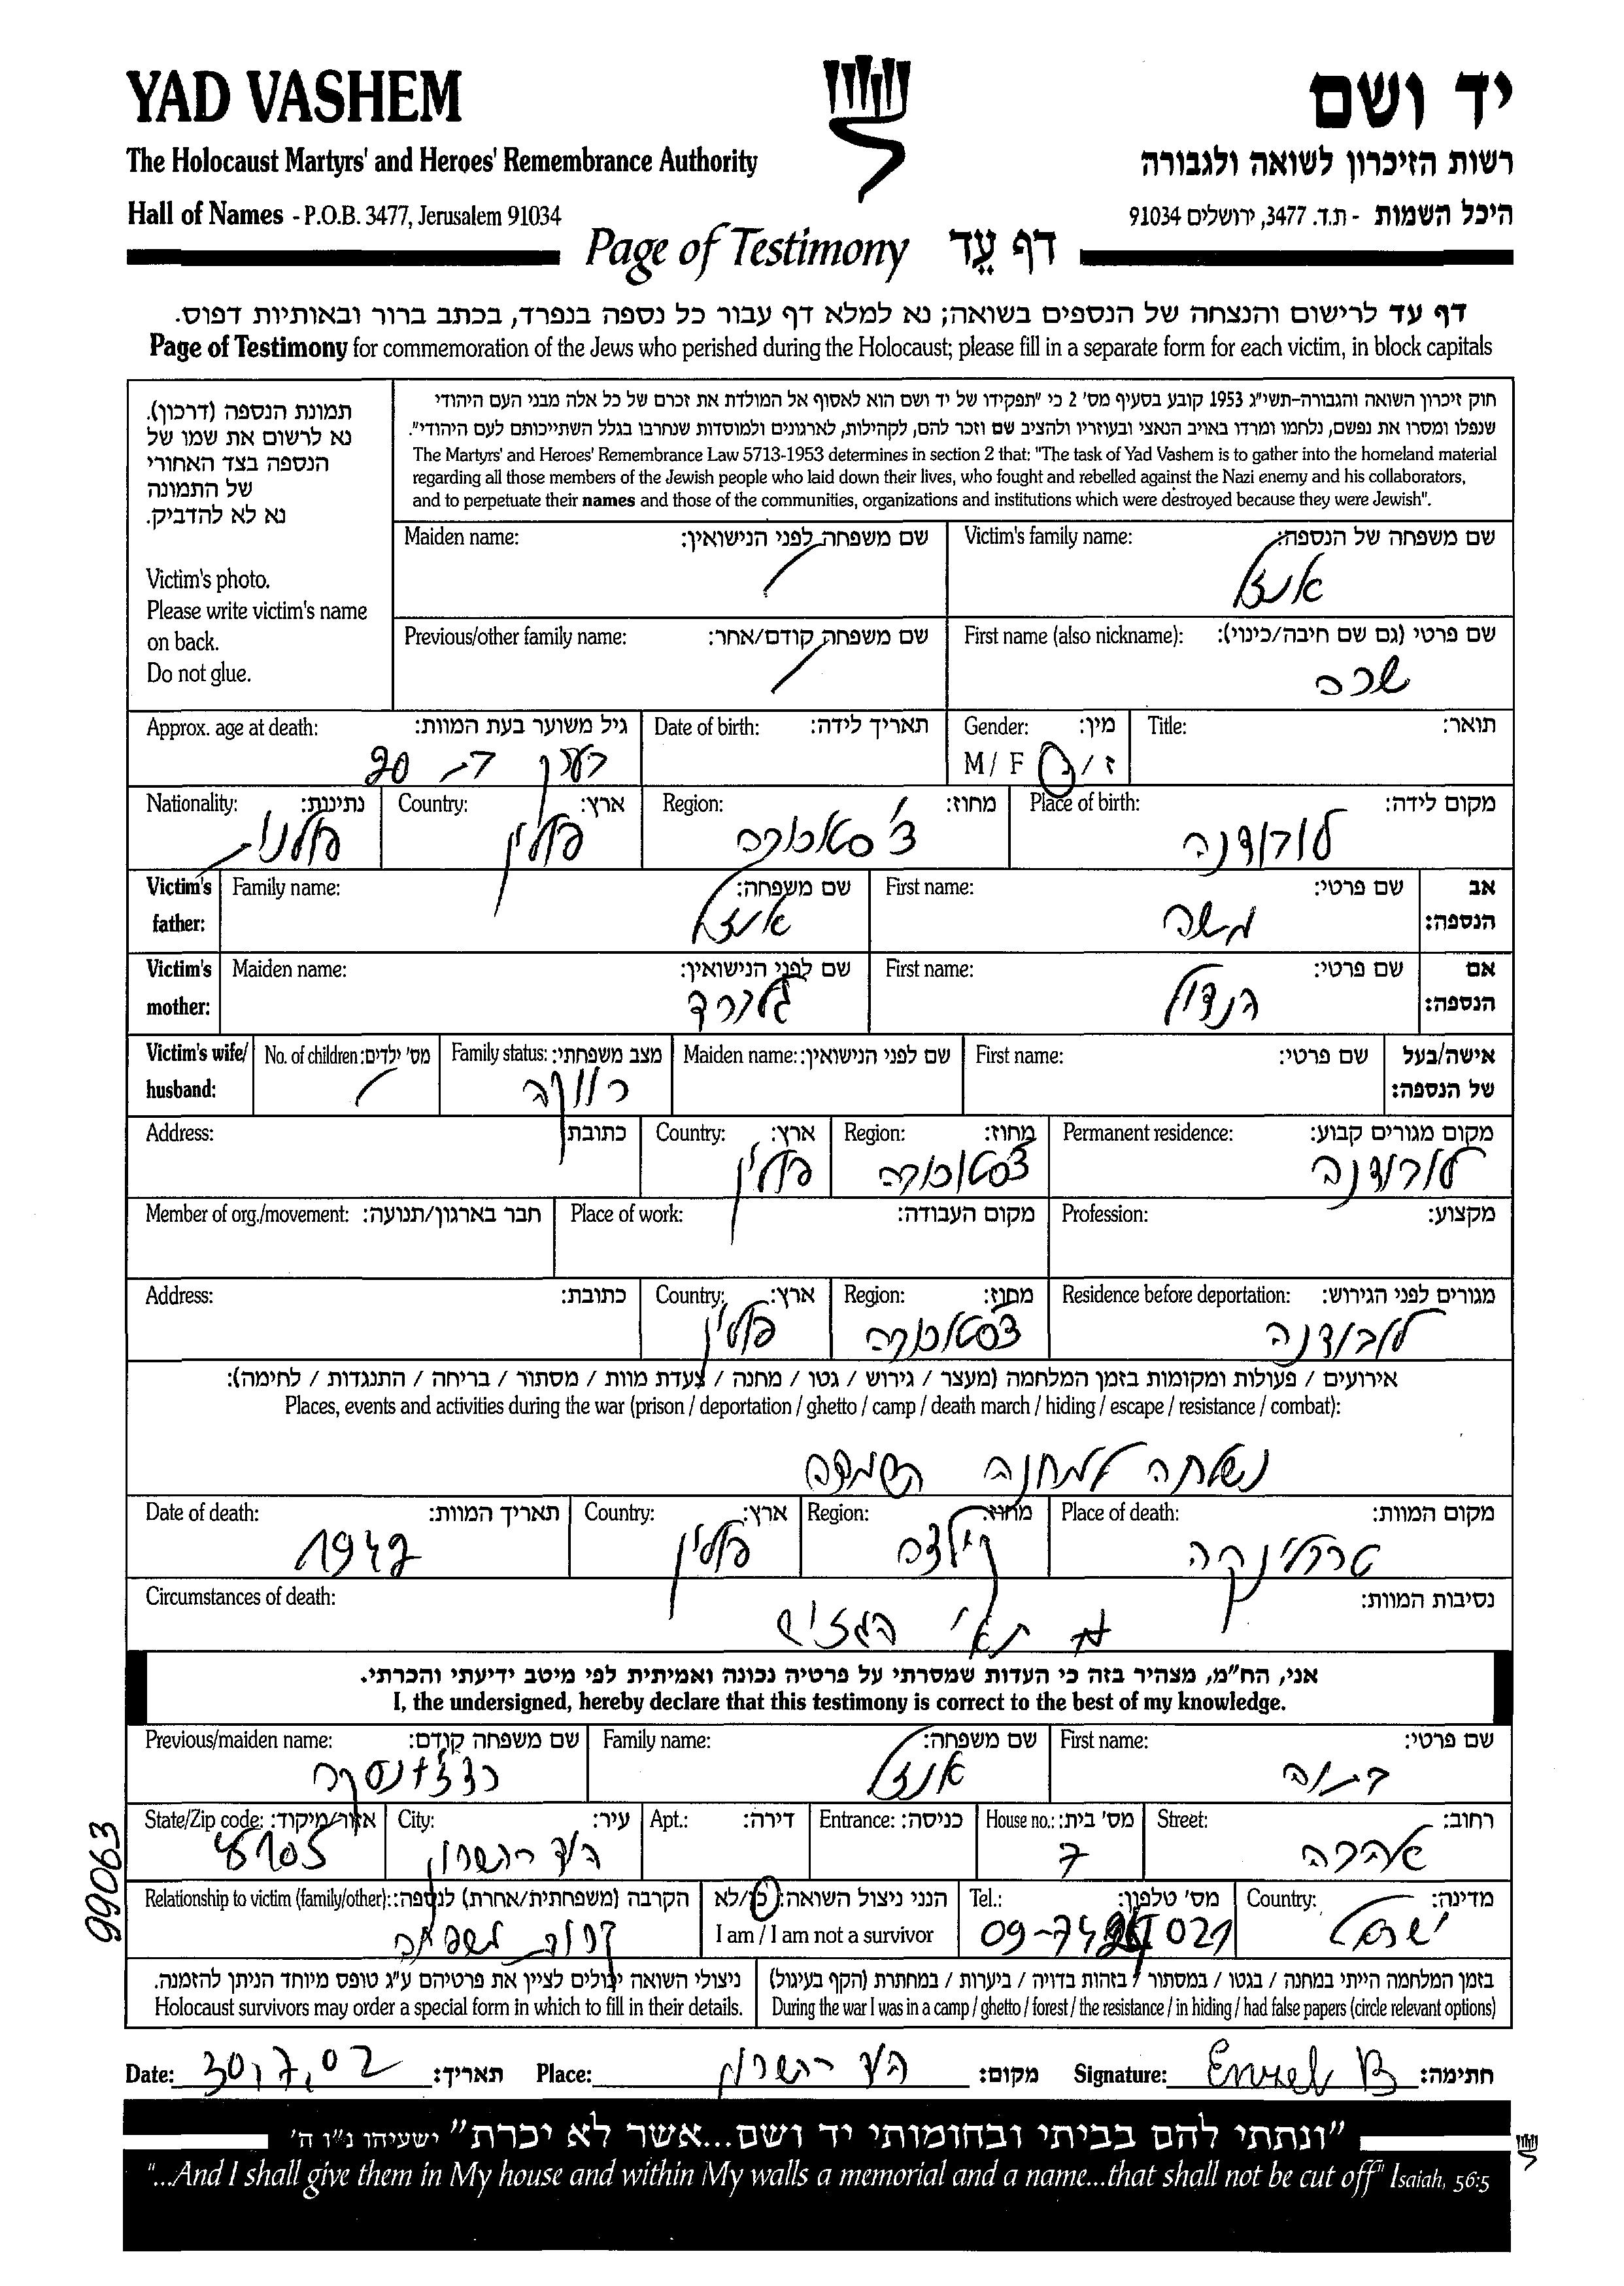 YAD VASHEM
יד ושם
The Holocaust Martyrs' and Heroes' Remembrance Authority
רשות הזיכרון לשואה ולגבורה
Hall of Names - P.O.B. 3477, Jerusalem 91034
היכל השמות - ת.ד. 3477, ירושלים 91034
Page of Testimony דף עֵד
דף עד לרישום והנצחה של הנספים בשואה; נא למלא דף עבור כל נספה בנפרד, בכתב ברור ובאותיות דפוס.
Page of Testimony for commemoration of the Jews who perished during the Holocaust; please fill in a separate form for each victim, in block capitals
תמונת הנספה (דרכון).
נא לרשום את שמו של
הנספה בצד האחורי
של התמונה
נא לא להדביק.
Victim's photo.
Please write victim's name
on back.
Do not glue.
חוק זיכרון השואה והגבורה-תשי"ג 1953 קובע בסעיף מס' 2 כי "תפקידו של יד ושם הוא לאסוף אל המולדת את זכרם של כל אלה מבני העם היהודי
שנפלו ומסרו את נפשם, נלחמו ומרדו באויב הנאצי ובעוזריו ולהציב שם וזכר להם, לקהילות, לארגונים ולמוסדות שנחרבו בגלל השתייכותם לעם היהודי".
The Martyrs' and Heroes' Remembrance Law 5713-1953 determines in section 2 that: "The task of Yad Vashem is to gather into the homeland material
regarding all those members of the Jewish people who laid down their lives, who fought and rebelled against the Nazi enemy and his collaborators,
and to perpetuate their names and those of the communities, organizations and institutions which were destroyed because they were Jewish".
Victim's family name: שם משפחה של הנספה:
אנזל
Maiden name: שם משפחה לפני הנישואין:
First name (also nickname): שם פרטי (גם שם חיבה/כינוי):
שרה
Previous/other family name: שם משפחה קודם/אחר:
Title: תואר:
Gender: מין:
M / F ז / נ
Date of birth: תאריך לידה:
Approx. age at death: גיל משוער בעת המוות:
20
Place of birth: מקום לידה:
Region: מחוז:
Country: ארץ:
פולין
Nationality: נתינות:
פולנית
Victim's father: אב הנספה:
First name: שם פרטי:
משה
Family name: שם משפחה:
אנזל
Victim's mother: אם הנספה:
First name: שם פרטי:
הנדל
Maiden name: שם לפני הנישואין:
Victim's wife/ husband: אישה/בעל של הנספה:
First name: שם פרטי:
Maiden name: שם לפני הנישואין:
Family status: מצב משפחתי:
רווקה
No. of children: מס' ילדים:
Permanent residence: מקום מגורים קבוע:
Region: מחוז:
Country: ארץ:
פולין
Address: כתובת
Profession: מקצוע:
Place of work: מקום העבודה:
Member of org./movement: חבר בארגון/תנועה:
Residence before deportation: מגורים לפני הגירוש:
Region: מחוז:
Country: ארץ:
פולין
Address: כתובת:
אירועים / פעולות ומקומות בזמן המלחמה (מעצר / גירוש / גטו / מחנה / צעדת מוות / מסתור / בריחה / התנגדות / לחימה):
Places, events and activities during the war (prison / deportation / ghetto / camp / death march / hiding / escape / resistance / combat):
נשלחה למחנה השמדה
Place of death: מקום המוות:
טרבלינקה
Region: מחוז:
קילצה
Country: ארץ:
פולין
Date of death: תאריך המוות:
1942
Circumstances of death: נסיבות המוות:
תאי הגזים
אני, הח"מ, מצהיר בזה כי העדות שמסרתי על פרטיה נכונה ואמיתית לפי מיטב ידיעתי והכרתי.
I, the undersigned, hereby declare that this testimony is correct to the best of my knowledge.
First name: שם פרטי:
Family name: שם משפחה:
אנזל
Previous/maiden name: שם משפחה קודם:
Street: רחוב:
House no.: מס' בית:
7
Entrance: כניסה:
Apt.: דירה:
City: עיר:
הוד השרון
State/Zip code: אזור/מיקוד:
Country: מדינה:
ישראל
Tel.: מס' טלפון:
I am / I am not a survivor הנני ניצול השואה: כן/לא
Relationship to victim (family/other): הקרבה (משפחתית/אחרת) לנספה:
קרובת משפחה
בזמן המלחמה הייתי במחנה / בגטו / במסתור / בזהות בדויה / ביערות / במחתרת (הקף בעיגול)
During the war I was in a camp / ghetto / forest / the resistance / in hiding / had false papers (circle relevant options)
ניצולי השואה יכולים לציין את פרטיהם ע"ג טופס מיוחד הניתן להזמנה.
Holocaust survivors may order a special form in which to fill in their details.
99063
Date: 30,7,02 תאריך: Place: הוד השרון מקום: Signature: חתימה:
"ונתתי להם בביתי ובחומותי יד ושם...אשר לא יכרת" ישעיהו נ"ו ה'
"...And I shall give them in My house and within My walls a memorial and a name...that shall not be cut off" Isaiah, 56:5